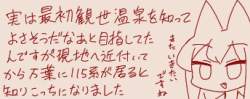 実は最初観世温泉を知って
よさそうだなぁと目指してた
んですが現地へ近付いて
から万葉に115系が居ると
知りこっちになりました
また、いきたい
ですね